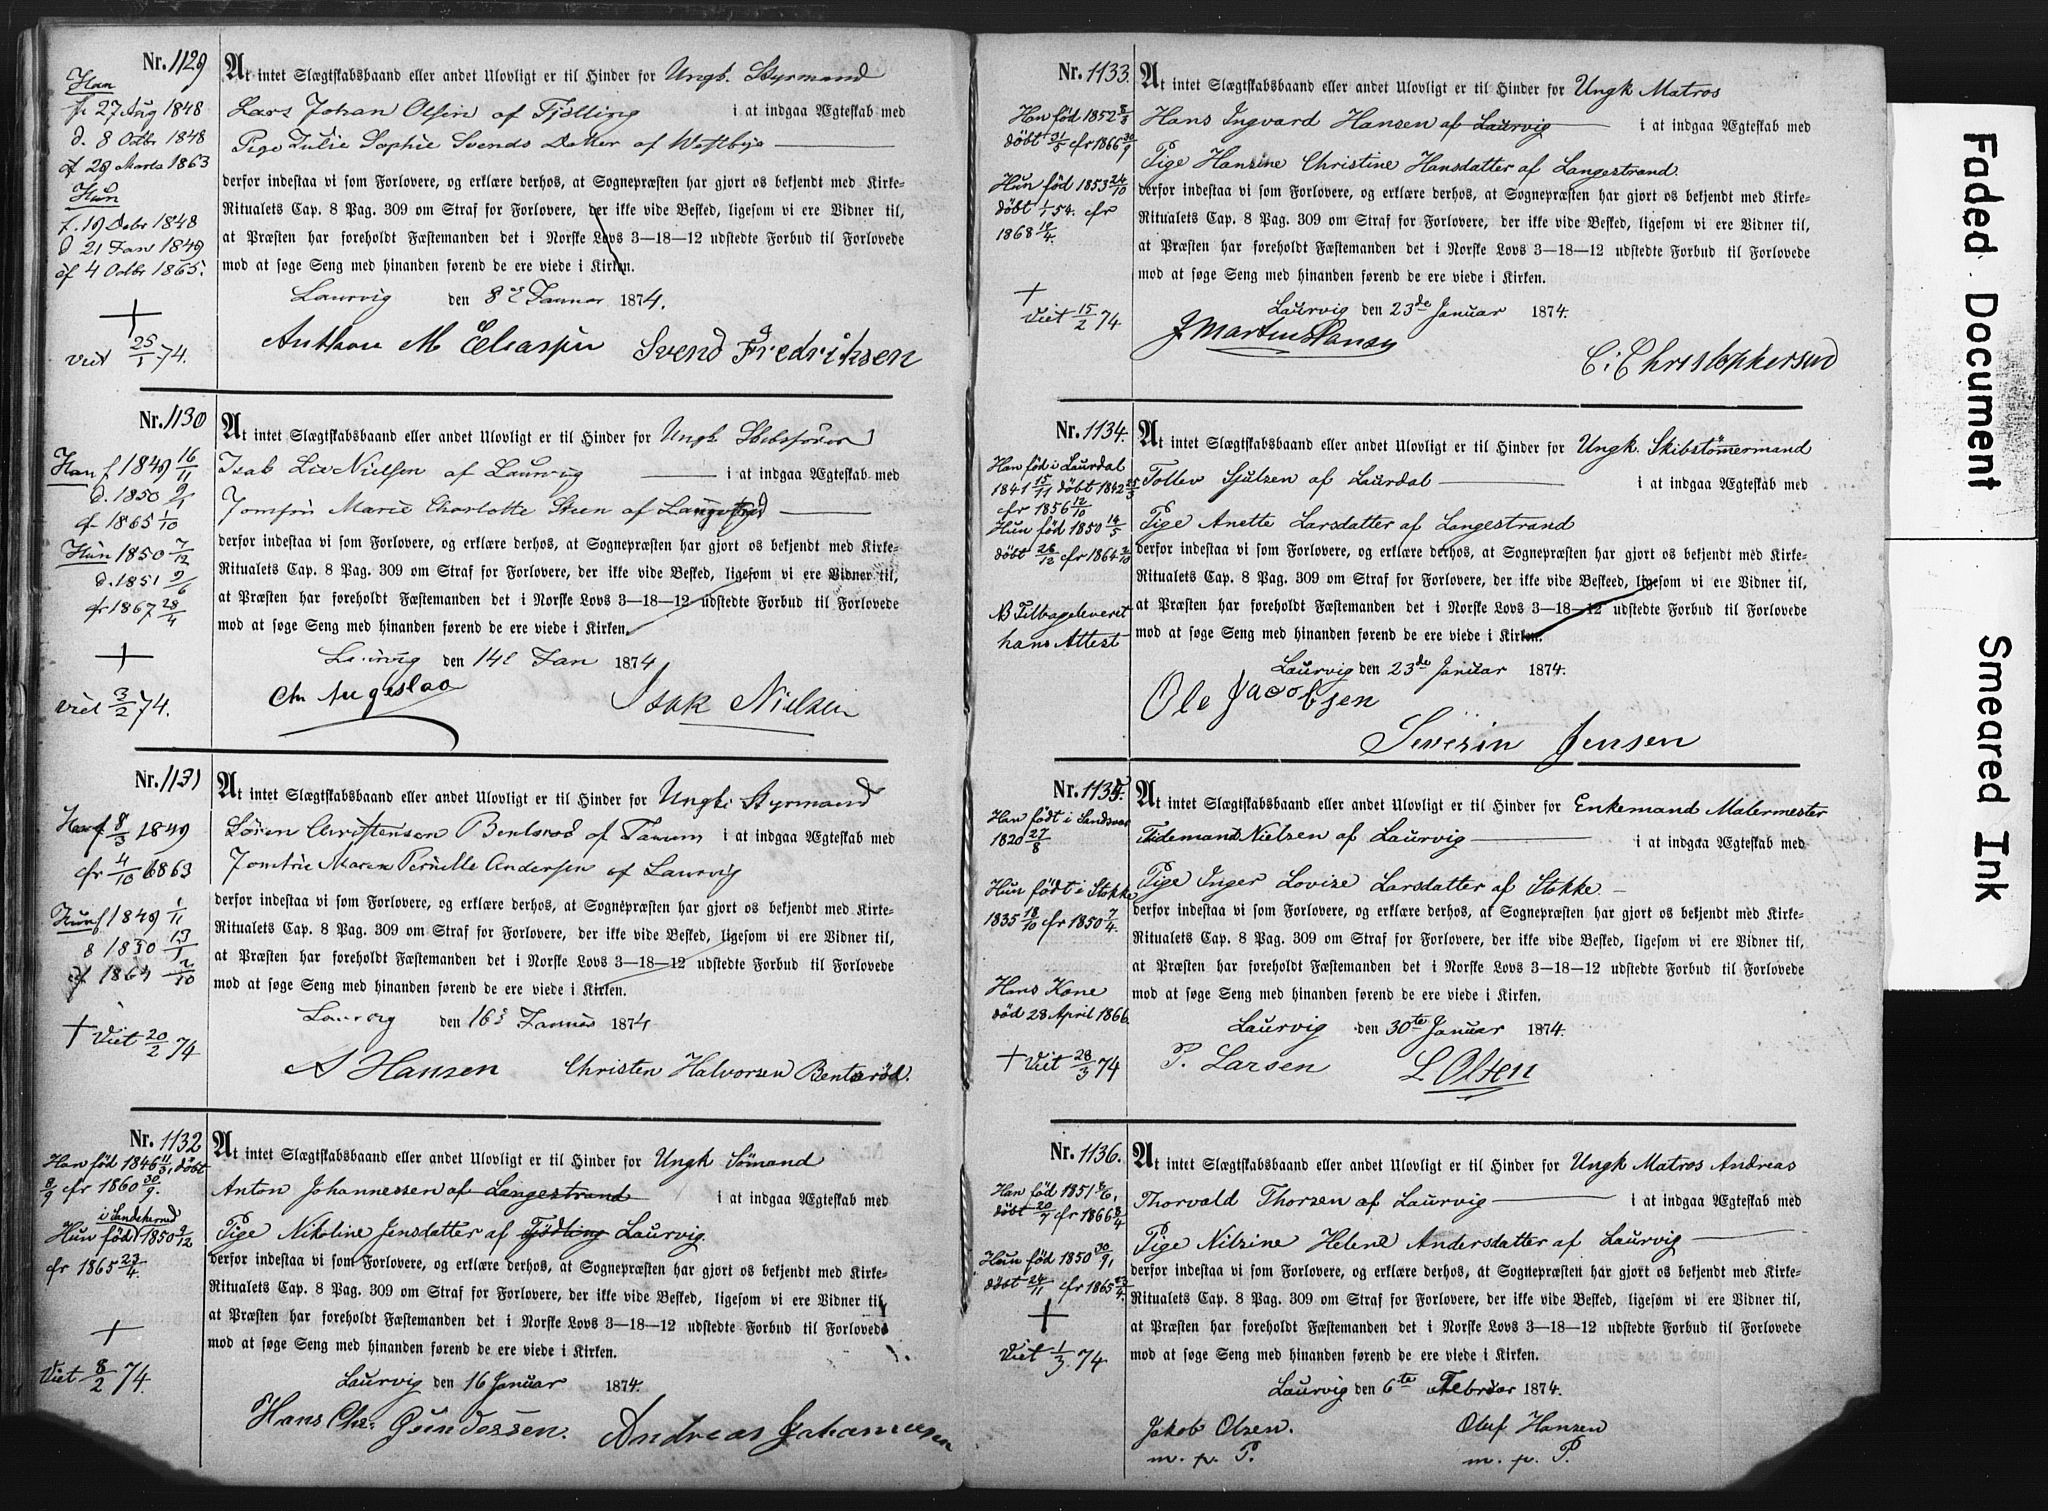 Nr. 1129
Han
f. 27 Aug 1848
d. 8 Octbr 1848
cf 29 Marts 1863
Hun
f. 19 Decbr 1848
d 21 Jan 1849
cf 4 Octbr 1865.
Viet 25/1 74.
At intet Slægtskabsbaand eller andet Ulovligt er til Hinder for Ungk. Styrmand
Lars Johan Olsen af Tjølling i at indgaa Ægteskab med
Pige Julie Sophie Svends Datter af Westbye
derfor indestaa vi som Forlovere, og erklære derhos, at Sognepræsten har gjort os bekjendt med Kirke-
Ritualets Cap. 8 Pag. 309 om Straf for Forlovere, der ikke vide Besked, ligesom vi ere Vidner til,
at Præsten har foreholdt Fæstemanden det i Norske Lovs 3—18—12 udstedte Forbud til Forlovede
mod at søge Seng med hinanden førend de ere viede i Kirken.
Laurvig den 8de Januar 1874.
Anthon M Eliassen Svend Fredriksen
Nr. 1130
Han f 1849 16/11
d. 1850
cfr 1865 1/10
Hun 1850 7/12
d. 1851 9/6
cfr 1867 28/4
Viet 3/2 74.
At intet Slægtskabsbaand eller andet Ulovligt er til Hinder for Ungk. Skibsfører
Isak Liv Nielsen af Laurvig i at indgaa Ægteskab med
Jomfru Marie Charlotte Steen af Langestrand
derfor indestaa vi som Forlovere, og erklære derhos, at Sognepræsten har gjort os bekjendt med Kirke-
Ritualets Cap. 8 Pag. 309 om Straf for Forlovere, der ikke vide Besked, ligesom vi ere Vidner til,
at Præsten har foreholdt Fæstemanden det i Norske Lovs 3—18—12 udstedte Forbud til Forlovede
mod at søge Seng med hinanden førend de ere viede i Kirken.
Laurvig den 14de Jan 1874
Isak Nielsen
Nr. 1131
Han f 8/3 1849
cfr 4/10 1863
Hun f 1849 1/11
1850 13/1
cf 1864 2/10
Viet 20/2 74
At intet Slægtskabsbaand eller andet Ulovligt er til Hinder for Ungk. Styrmand
Søren Christensen Bentsrød af Tanum i at indgaa Ægteskab med
Jomfru Maren Pernille Andersen af Laurvig
derfor indestaa vi som Forlovere, og erklære derhos, at Sognepræsten har gjort os bekjendt med Kirke-
Ritualets Cap. 8 Pag. 309 om Straf for Forlovere, der ikke vide Besked, ligesom vi ere Vidner til,
at Præsten har foreholdt Fæstemanden det i Norske Lovs 3—18—12 udstedte Forbud til Forlovede
mod at søge Seng med hinanden førend de ere viede i Kirken.
Laurvig den 16de Januar 1874
A Hansen Christen Halvorsen Bentsrød.
Nr. 1132
Han fød 1846 11/3, døbt
8/9 cfr 1860 30/9.
i Sandeherred
Hun fød 1850 9/12
cfr 1865 23/4
Viet 8/2 74.
At intet Slægtskabsbaand eller andet Ulovligt er til Hinder for Ungk Sømand
Anton Johannessen af Langestrand i at indgaa Ægteskab med
Pige Nikoline Jensdatter af Tjødling Laurvig.
derfor indestaa vi som Forlovere, og erklære derhos, at Sognepræsten har gjort os bekjendt med Kirke-
Ritualets Cap. 8 Pag. 309 om Straf for Forlovere, der ikke vide Besked, ligesom vi ere Vidner til,
at Præsten har foreholdt Fæstemanden det i Norske Lovs 3—18—12 udstedte Forbud til Forlovede
mod at søge Seng med hinanden førend de ere viede i Kirken.
Laurvig den 16 Januar 1874.
Hans Chr. Gundersen. Andreas Johannesen
Nr. 1133.
Han fød 1852 8/3
døbt 31/5 cfr 1866 30/9
Hun fød 1853 24/10
døbt 1/1 54. cfr
1868
Viet 15/2 74
At intet Slægtskabsbaand eller andet Ulovligt er til Hinder for Ungk Matros
Hans Ingvard Hansen af Laurvig i at indgaa Ægteskab med
Pige Hansine Christine Hansdatter af Langestrand.
derfor indestaa vi som Forlovere, og erklære derhos, at Sognepræsten har gjort os bekjendt med Kirke-
Ritualets Cap. 8 Pag. 309 om Straf for Forlovere, der ikke vide Besked, ligesom vi ere Vidner til,
at Præsten har foreholdt Fæstemanden det i Norske Lovs 3—18—12 udstedte Forbud til Forlovede
mod at søge Seng med hinanden førend de ere viede i Kirken.
Laurvig den 23de Januar 1874.
J Martin Hansen
C. Christophersen
Nr. 1134.
Han fød i Laurdal
1841 15/11 døbt 1842 25/3
cfr 1856 12/10
Hun fød 1850 14/5
døbt 26/12 cfr 1864 2/10
NB Tilbageleveret
hans Attest
At intet Slægtskabsbaand eller andet Ulovligt er til Hinder for Ungk. Skibstømermand
Tollev Sjulsen af Laurdal i at indgaa Ægteskab med
Pige Anette Larsdatter af Langestrand
derfor indestaa vi som Forlovere, og erklære derhos, at Sognepræsten har gjort os bekjendt med Kirke-
Ritualets Cap. 8 Pag. 309 om Straf for Forlovere, der ikke vide Beskeed, ligesom vi ere Vidner til,
at Præsten har foreholdt Fæstemanden det i Norske Lovs 3—18—12 udstedte Forbud til Forlovede
mod at søge Seng med hinanden førend de ere viede i Kirken.
Laurvig den 23de Januar 1874.
Ole Jacobsen
Severin Jensen
Nr. 1135.
Han født i Sandsvær
1820 27/8
Hun født i Stokke
1835 18/10 cfr 1850 7/4.
Hans Kone
død 28 April 1866.
Viet 28/3 74
At intet Slægtskabsbaand eller andet Ulovligt er til Hinder for Enkemand Malermester
Tidemand Nielsen af Laurvig i at indgaa Ægteskab med
Pige Inger Lovise Larsdatter af Stokke
derfor indestaa vi som Forlovere, og erklære derhos, at Sognepræsten har gjort os bekjendt med Kirke-
Ritualets Cap. 8 Pag. 309 om Straf for Forlovere, der ikke vide Besked, ligesom vi ere Vidner til,
at Præsten har foreholdt Fæstemanden det i Norske Lovs 3—18—12 udstedte Forbud til Forlovede
mod at søge Seng med hinanden førend de ere viede i Kirken.
Laurvig den 30te Januar 1874.
P. Larsen L Olsen
Nr. 1136.
Han fød 1851 8/6,
døbt 20/7 cfr 1866 8/4
Hun fød 1850 30/9,
døbt 24/11 cfr 1865 23/4.
Viet 1/3. 74
At intet Slægtskabsbaand eller andet Ulovligt er til Hinder for Ungk Matros Andreas
Thorvald Thorsen af Laurvig i at indgaa Ægteskab med
Pige Nilsine Helene Andersdatter af Laurvig
derfor indestaa vi som Forlovere, og erklære derhos, at Sognepræsten har gjort os bekjendt med Kirke-
Ritualets Cap. 8 Pag. 309 om Straf for Forlovere, der ikke vide Besked, ligesom vi ere Vidner til,
at Præsten har foreholdt Fæstemanden det i Norske Lovs 3—18—12 udstedte Forbud til Forlovede
mod at søge Seng med hinanden førend de ere viede i Kirken.
Laurvig den 6te Februar 1874.
Jakob Olsen. Oluf Hansen
m. p. P. m. p. P.
Faded Document Smeared Ink